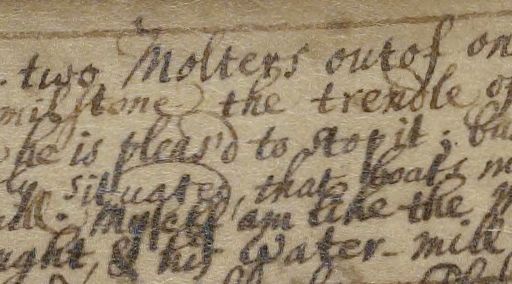 two Molters out of on
milstone the trendle of
he is pleas'd to stop it; bu
ly situated, that boats m
ill. Myself am like the M
ught, & his Water-mill